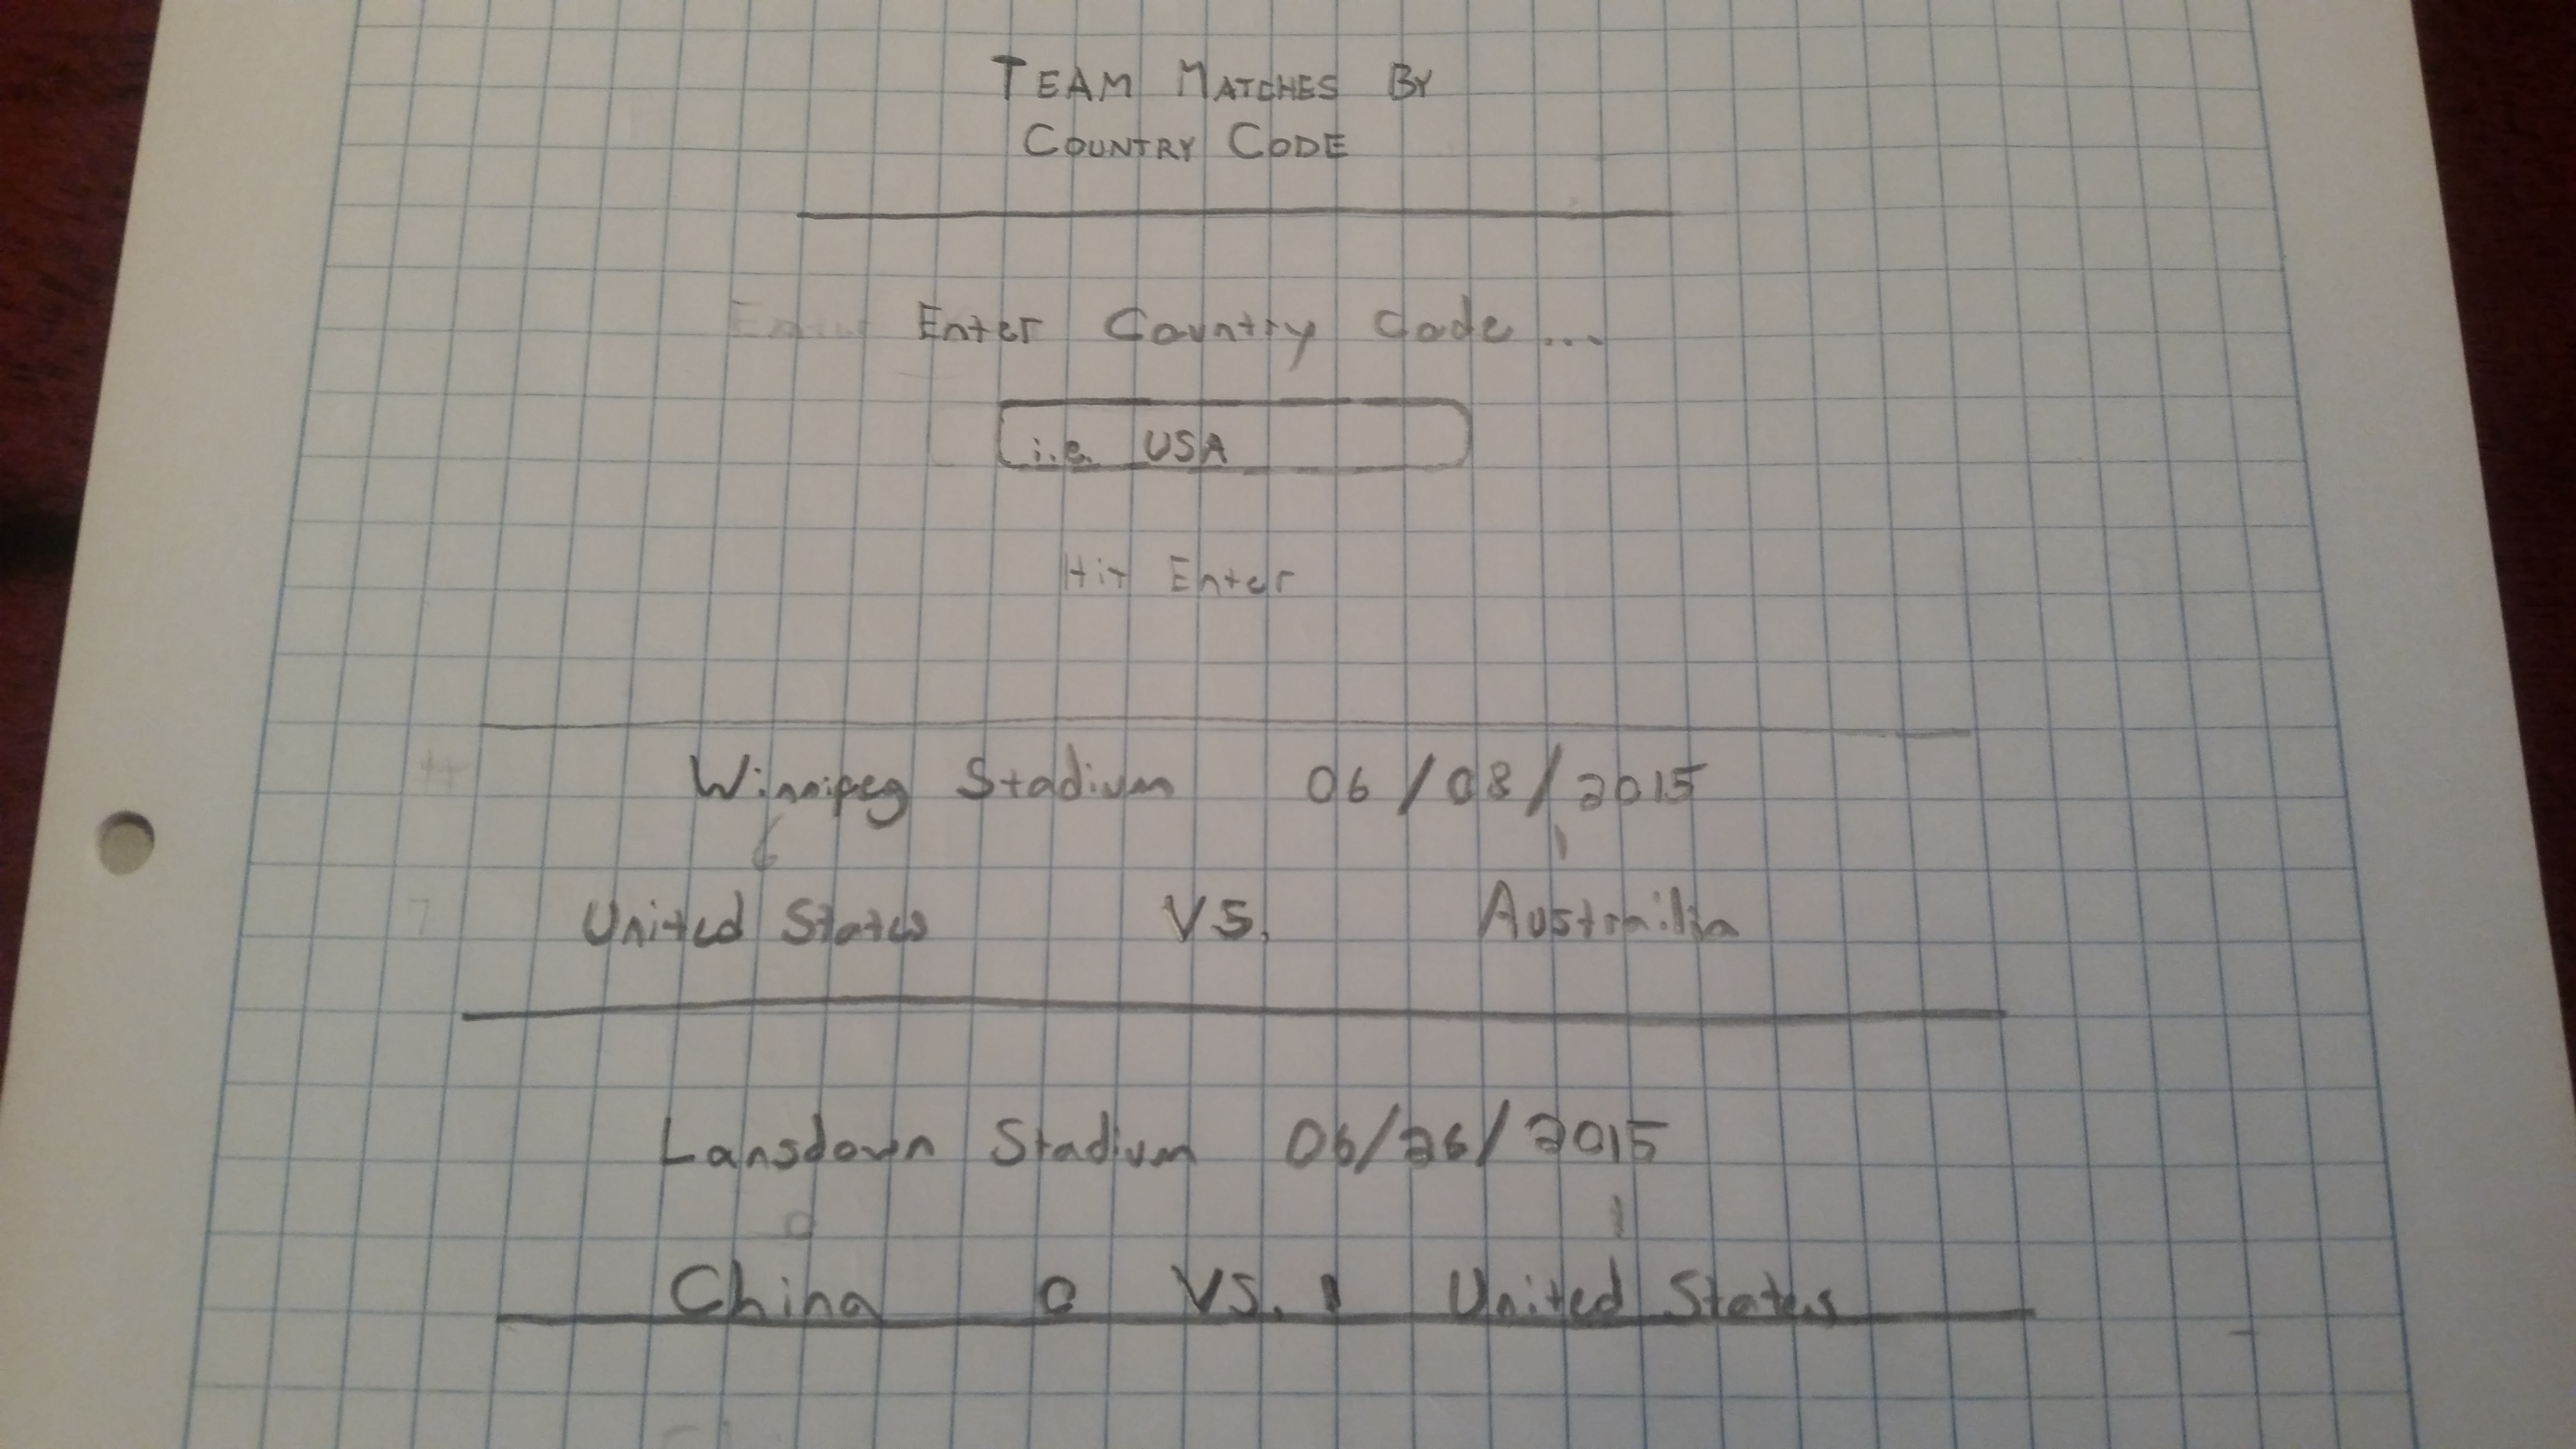 TEAM MATCHES BY
COUNTRY CODE
Enter Country Code ...
i.e. USA
Hit Enter
Winnipeg Stadium 06/08/2015
United States VS. Austrailia
Lansdown Stadium 06/26/2015
0 1
China 0 VS. 1 United States